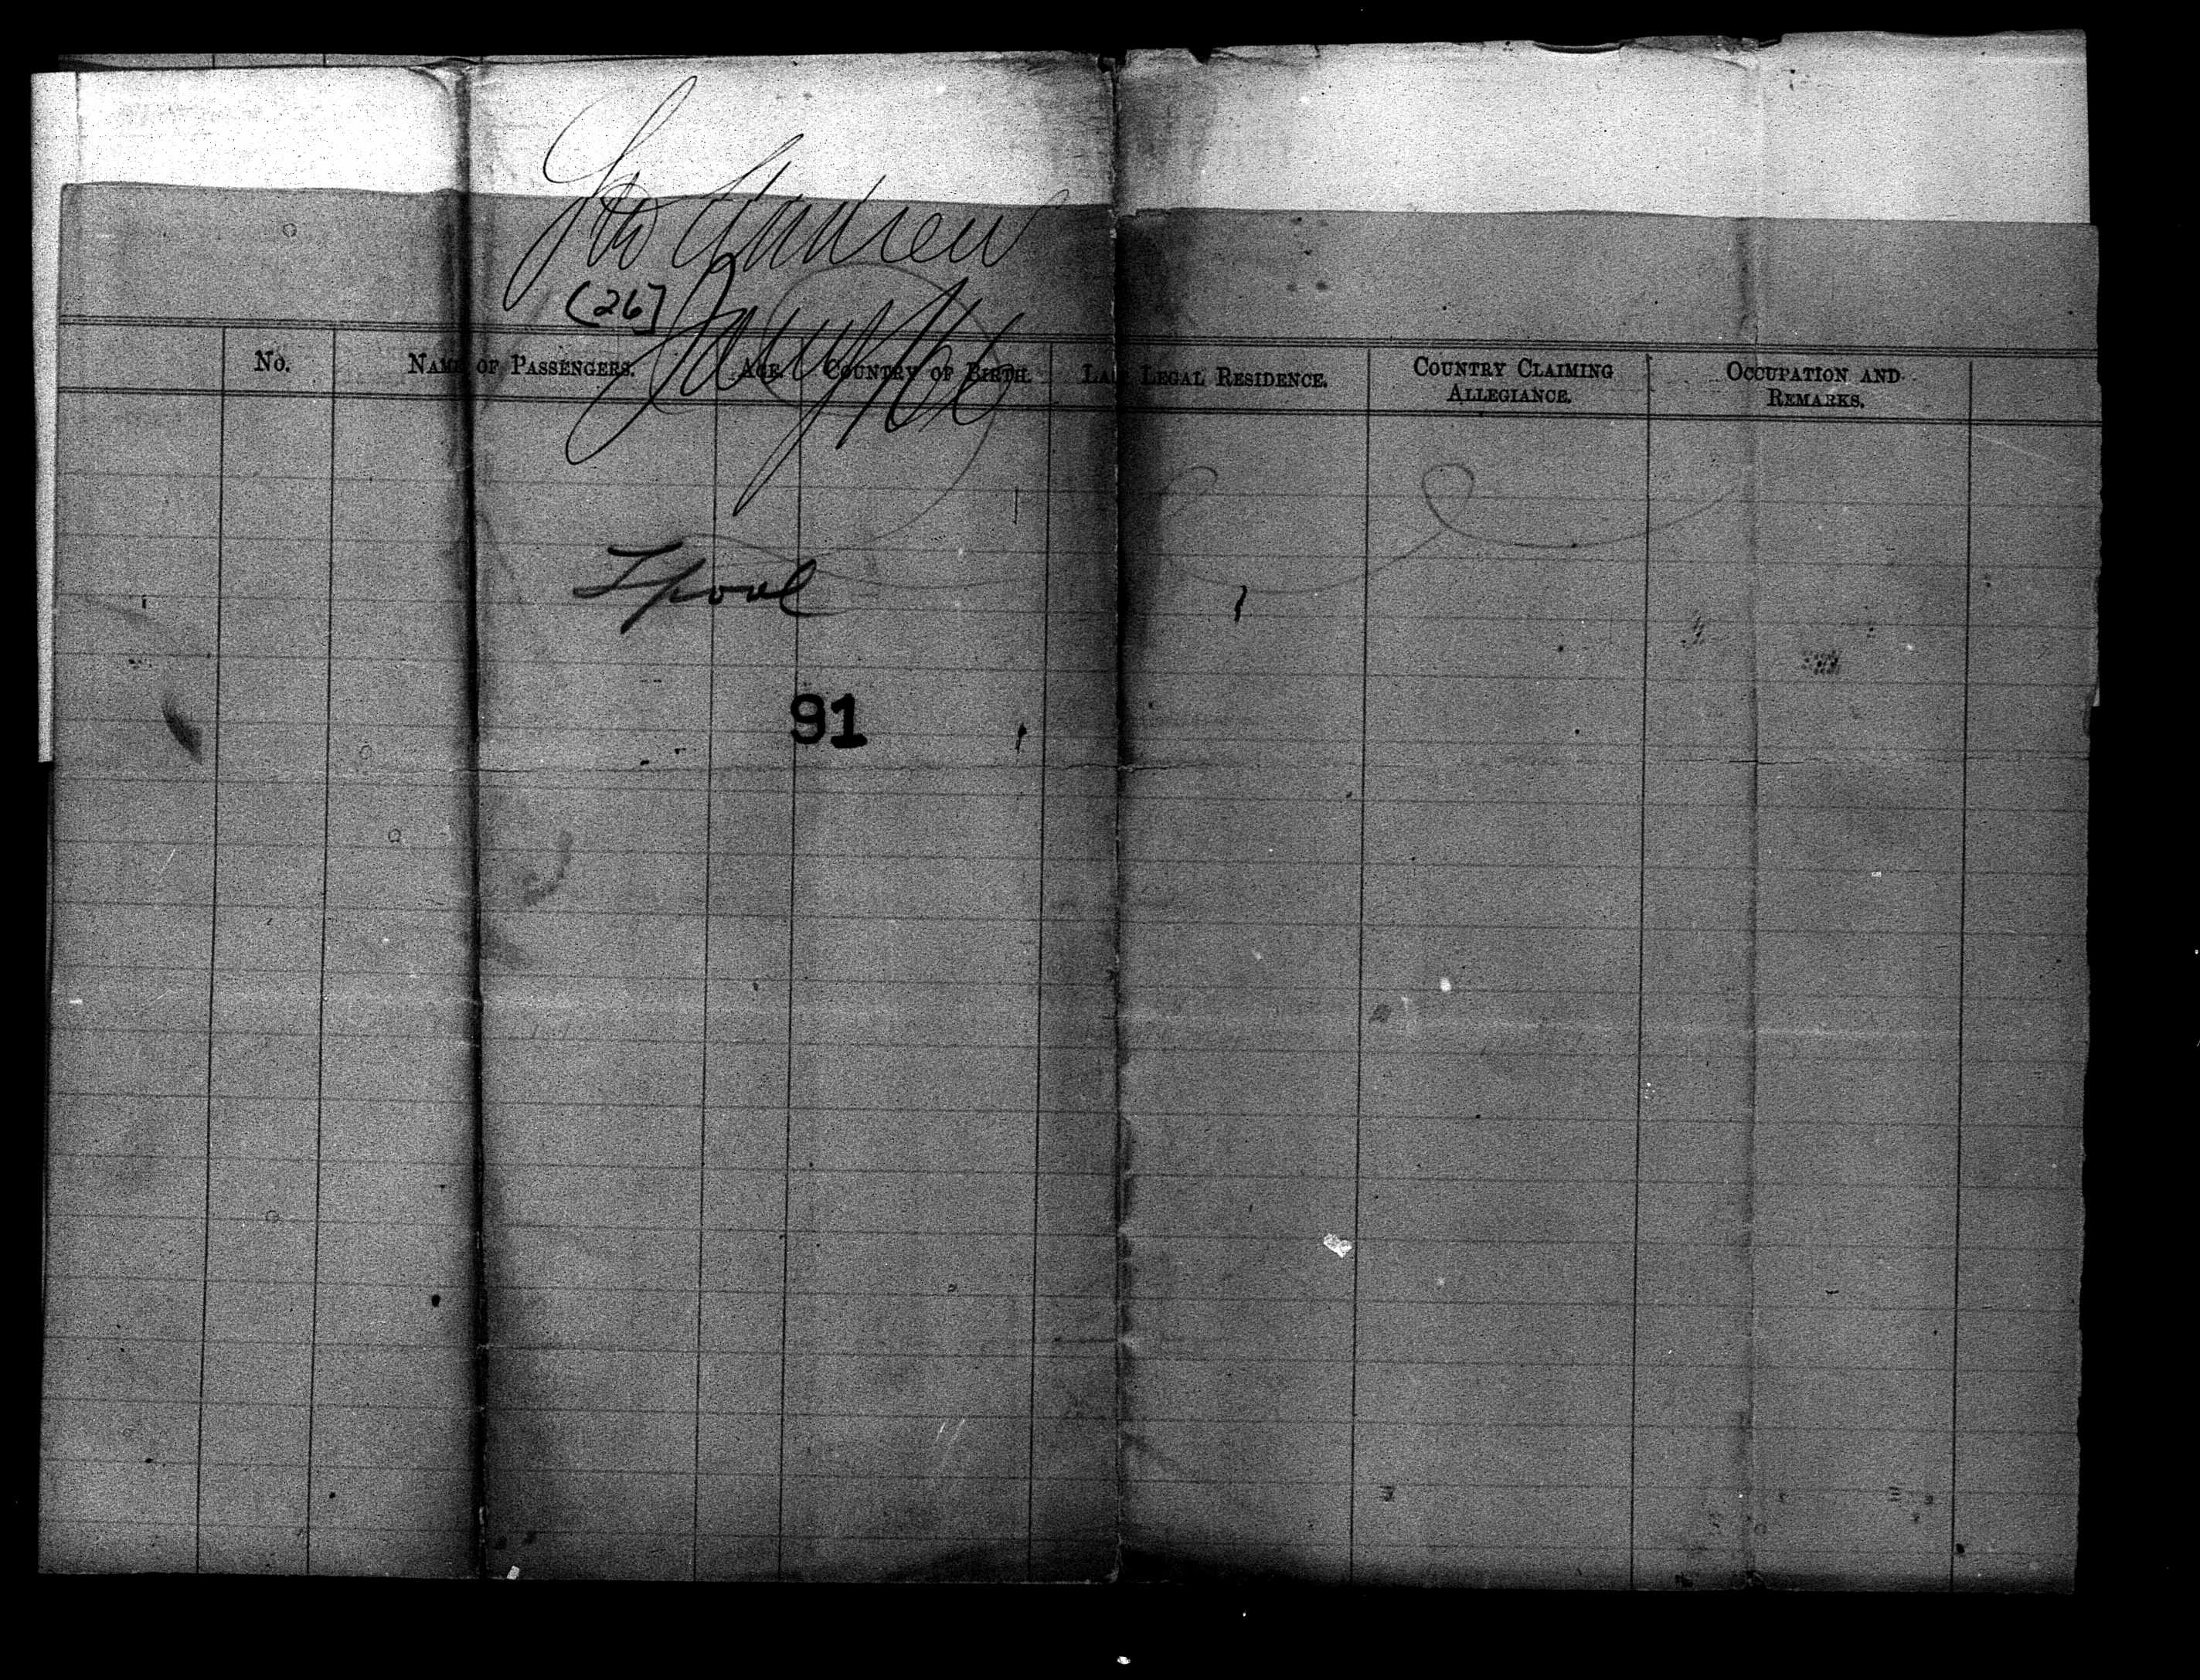 Andrew
(26]
No. NAME OF PASSENGERS. AGE. COUNTRY OF BIRTH. LAST LEGAL RESIDENCE. COUNTRY CLAIMING ALLEGIANCE. OCCUPATION AND REMARKS.
91